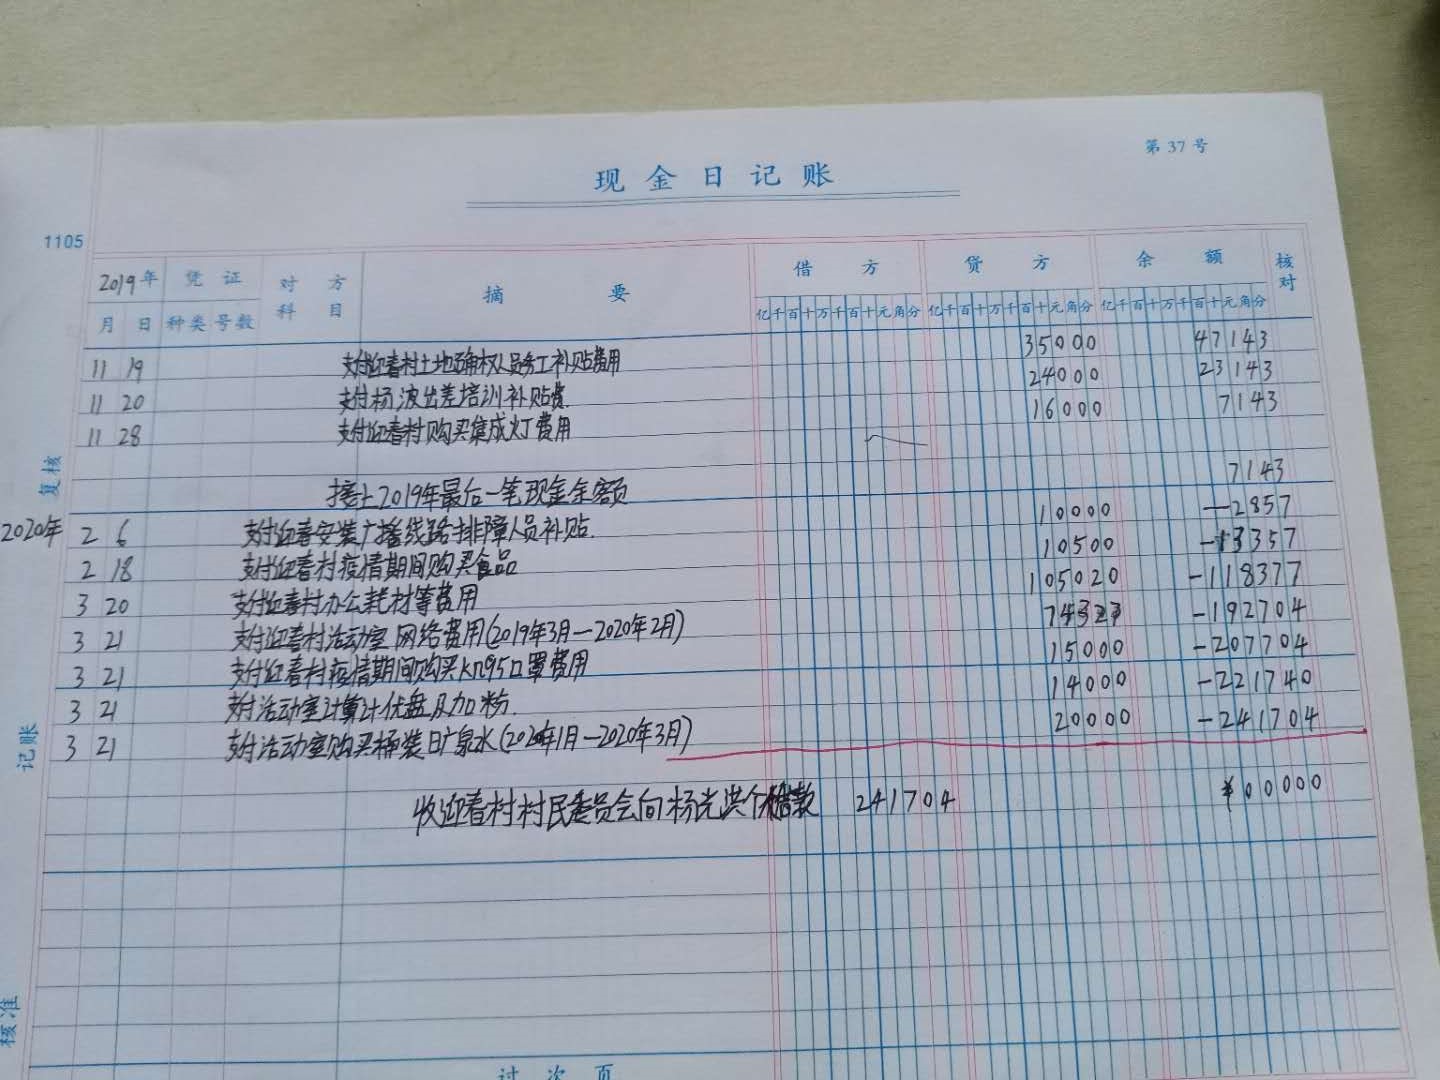 第 37 号
现金日记账
1105
2019年 凭证 对方科目 摘要 借方 贷方 余额 核对
月 日 种类 号数 亿千百十万千百十元角分 亿千百十万千百十元角分 亿千百十万千百十元角分
11 19 支付迎春村土地确权人员务工补贴费用 35000 47143
11 20 支付杨波出差培训补贴费. 24000 23143
11 28 支付迎春村购买集成灯费用 16000 7143
接上2019年最后一笔现金余额 7143
2020年 2 6 支付迎春安装广播线路排障人员补贴. 10000 -2857
2 18 支付迎春村疫情期间购买食品 10500 -13357
3 20 支付迎春村办公耗材等费用 105020 -118377
3 21 支付迎春村活动室网络费用(2019年3月-2020年2月) 74327 -192704
3 21 支付迎春村疫情期间购买KN95口罩费用 15000 -207704
3 21 支付活动室计算计优盘及加粉. 14000 -221740
3 21 支付活动室购买桶装旷泉水(2020年1月-2020年3月) 20000 -241704
收迎春村村民委员会向杨光洪个人借款 241704 ¥00000
复核
记账
核准
过次页